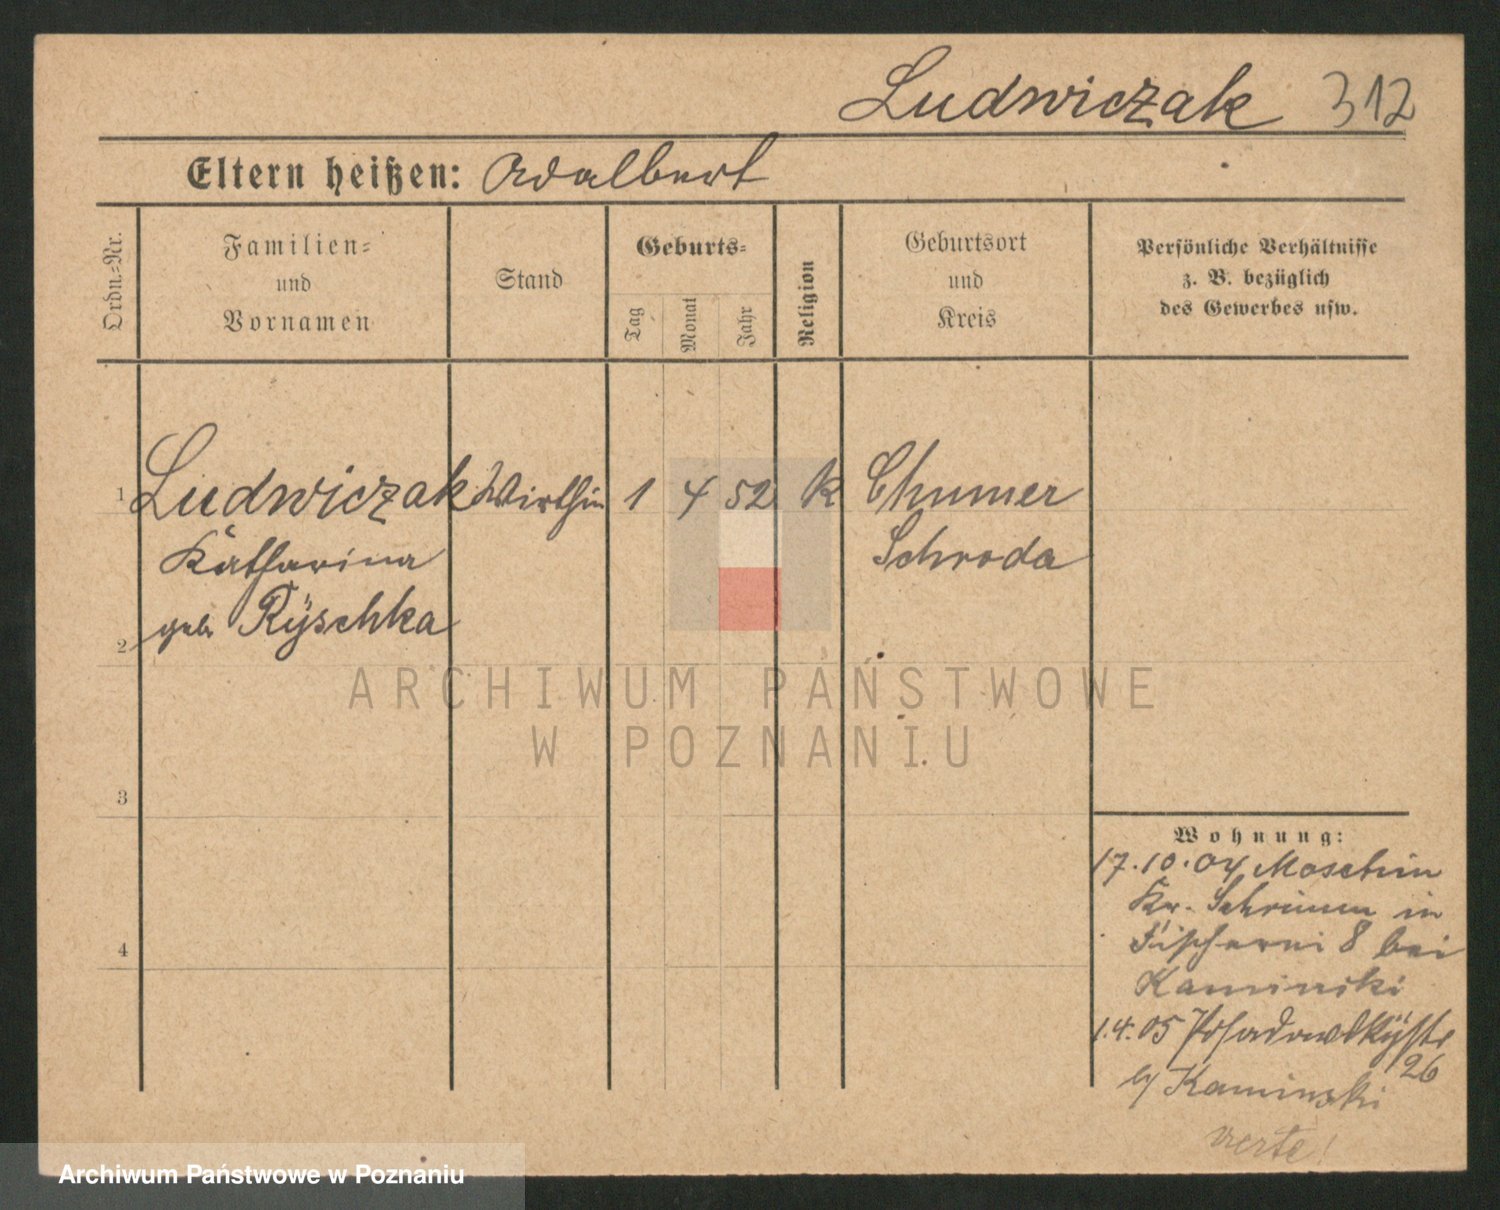 Ludwiczak 312
Eltern heißen: Adalbert
Ordn.=Nr.
Familien=
und
Vornamen
Stand
Geburts=
Tag
Monat
Jahr
Religion
Geburtsort
und
Kreis
Persönliche Verhältnisse
z. B. bezüglich
des Gewerbes usw.
1 Ludwiczak Wirthin 1 4 52 K
Katharina Schroda
geb Rÿschka
2
3
4
Wohnung:
17.10.04 Moschin
Kr. Schrimm in
Fischerei 8 bei
Kaminski
1.4.05
26
b/ Kaminski
verte!
ARCHIWUM PAŃSTWOWE
W POZNANIU
Archiwum Państwowe w Poznaniu